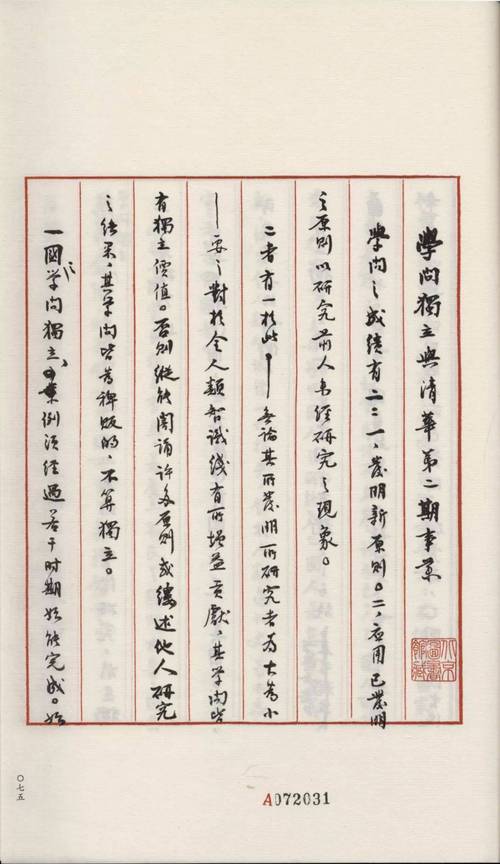 學问獨立與清華第二期事業
學问之成绩有二：一、發明新原則。二、应用已發明
之原則以研究前人未经研究之现象。
二者有一於此——無論其所發明所研究者為大為小
——要之對於全人類智識线有所增益貢獻，其学問皆
有獨立價值。否則縱能閎誦许多原則或縷述他人研究
之结果，其学問皆為稗販的，不算獨立。
一國之学問獨立、例須经過若干时期始能完成。始
北京圖書館藏
〇七五
A072031